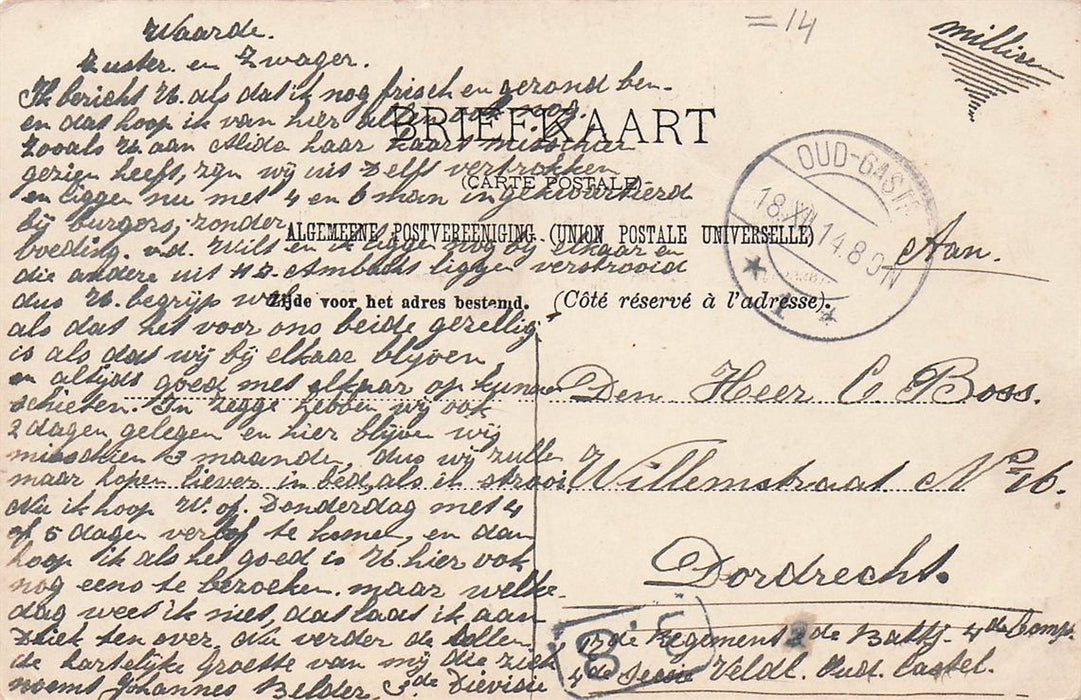 =14
millisen
Waarde.
Zuster en Zwager.
Ik bericht U. als dat ik nog frisch en gezond ben.
en dat hoop ik van hier allen ook nog.
zooals U. aan Alida haar kaart misschien
gezien heeft, zijn wij uit Delft vertrokken
en liggen nu met 4 en 6 man ingekwartierd
bij burgers, zonder
voeding. v.d. Wilt en ik liggen nog bij elkaar en
die andere uit H.I. Ambacht liggen verstrooid
dus U. begrijp wel
als dat het voor ons beide gezellig
is als dat wij bij elkaar blijven
en altijd goed met elkaar op kunnen
schieten. In Zegge hebben wij ook
2 dagen gelegen en hier blijven wij
misschien 3 maanden dus wij zulle
maar hopen liever in bed, als it strooi,
Nu ik hoop W. of. Donderdag met 4
of 5 dagen verlof te komen, en dan
hoop ik als het goed is U. hier ook
nog eens te bezoeken. maar welke
dag weet ik niet, dat laat ik aan
Ziek ten over, Nu verder de
de hartelijke Groette van mij die ziek
noemt Johannes Belder 3de Dievisie
BRIEFKAART
(CARTE POSTALE)
ALGEMEENE POSTVEREENIGING (UNION POSTALE UNIVERSELLE)
Zijde voor het adres bestemd. (Côté réservé à l'adresse).
OUD-GAST
18.XII.14.8.9N
1
Aan.
Den Heer C Boss.
Willemstraat No 16.
Dordrecht.
de Regement 2de Battj. 4de Comp.
4de Secsie Veldl. Oud. Castel.
B